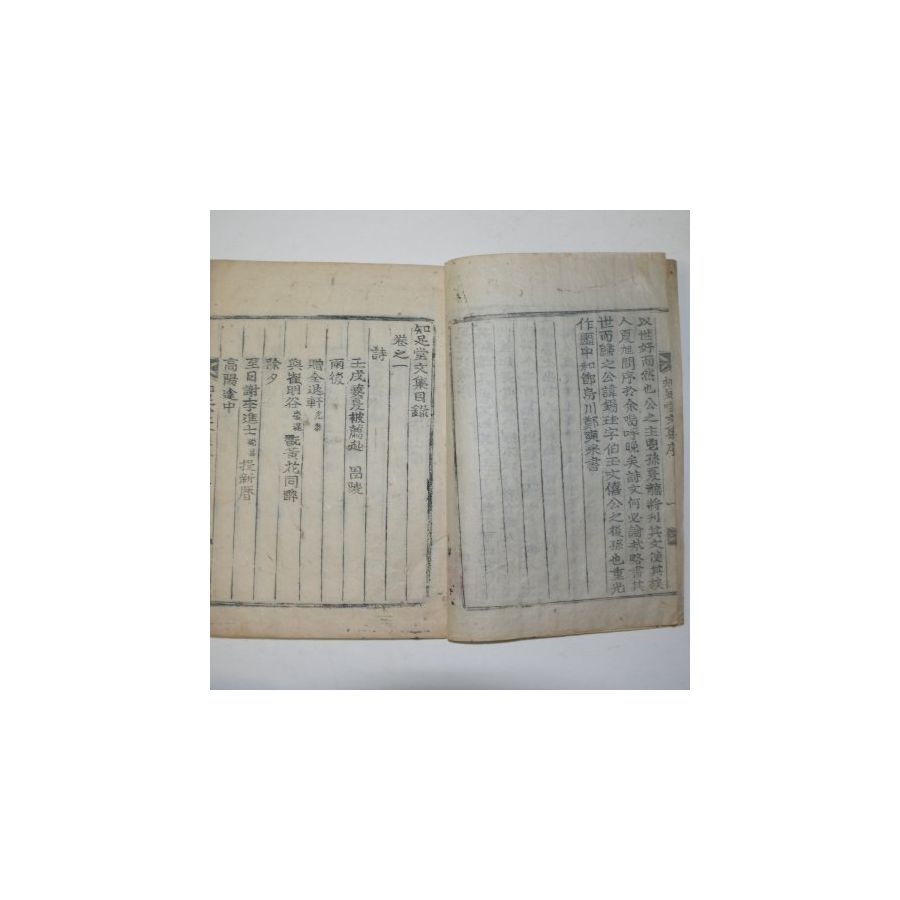 以世好而然也公之主鬯孫夏龍將刊其文使其族
人夏旭問序於余嗚呼晩矣詩文何必論哉略書其
世而歸之公諱錫 字伯玉文僖公之後孫也重光
作噩中和節烏川鄭 書
知足堂文集序
一
知足堂文集目錄
卷之一
詩
壬戌 夏被薦赴 昌陵
雨後
贈全退軒
與崔明谷 翫黃花同醉
除夕
至日謝李進士 授新曆
高陽途中